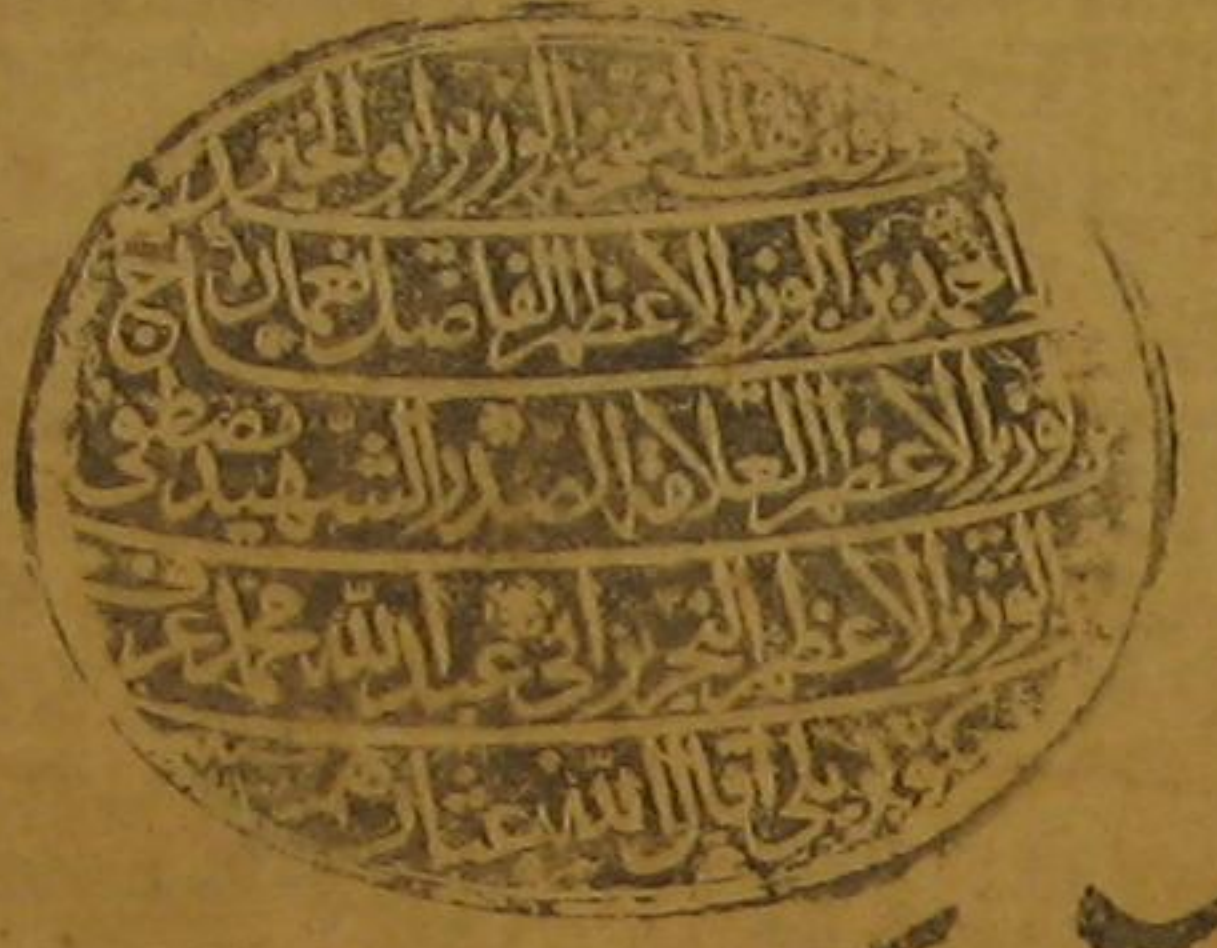 وقف هذه النسخة الوزير ابو الخير
احمد بن الوزير الاعظم الفاضل نعمان بن
الوزير الاعظم العلامة الصدر الشهيد مصطفى بن
الوزير الاعظم النحرير ابي عبد الله محمد عرف
كوپريلي اقال الله عثارهم